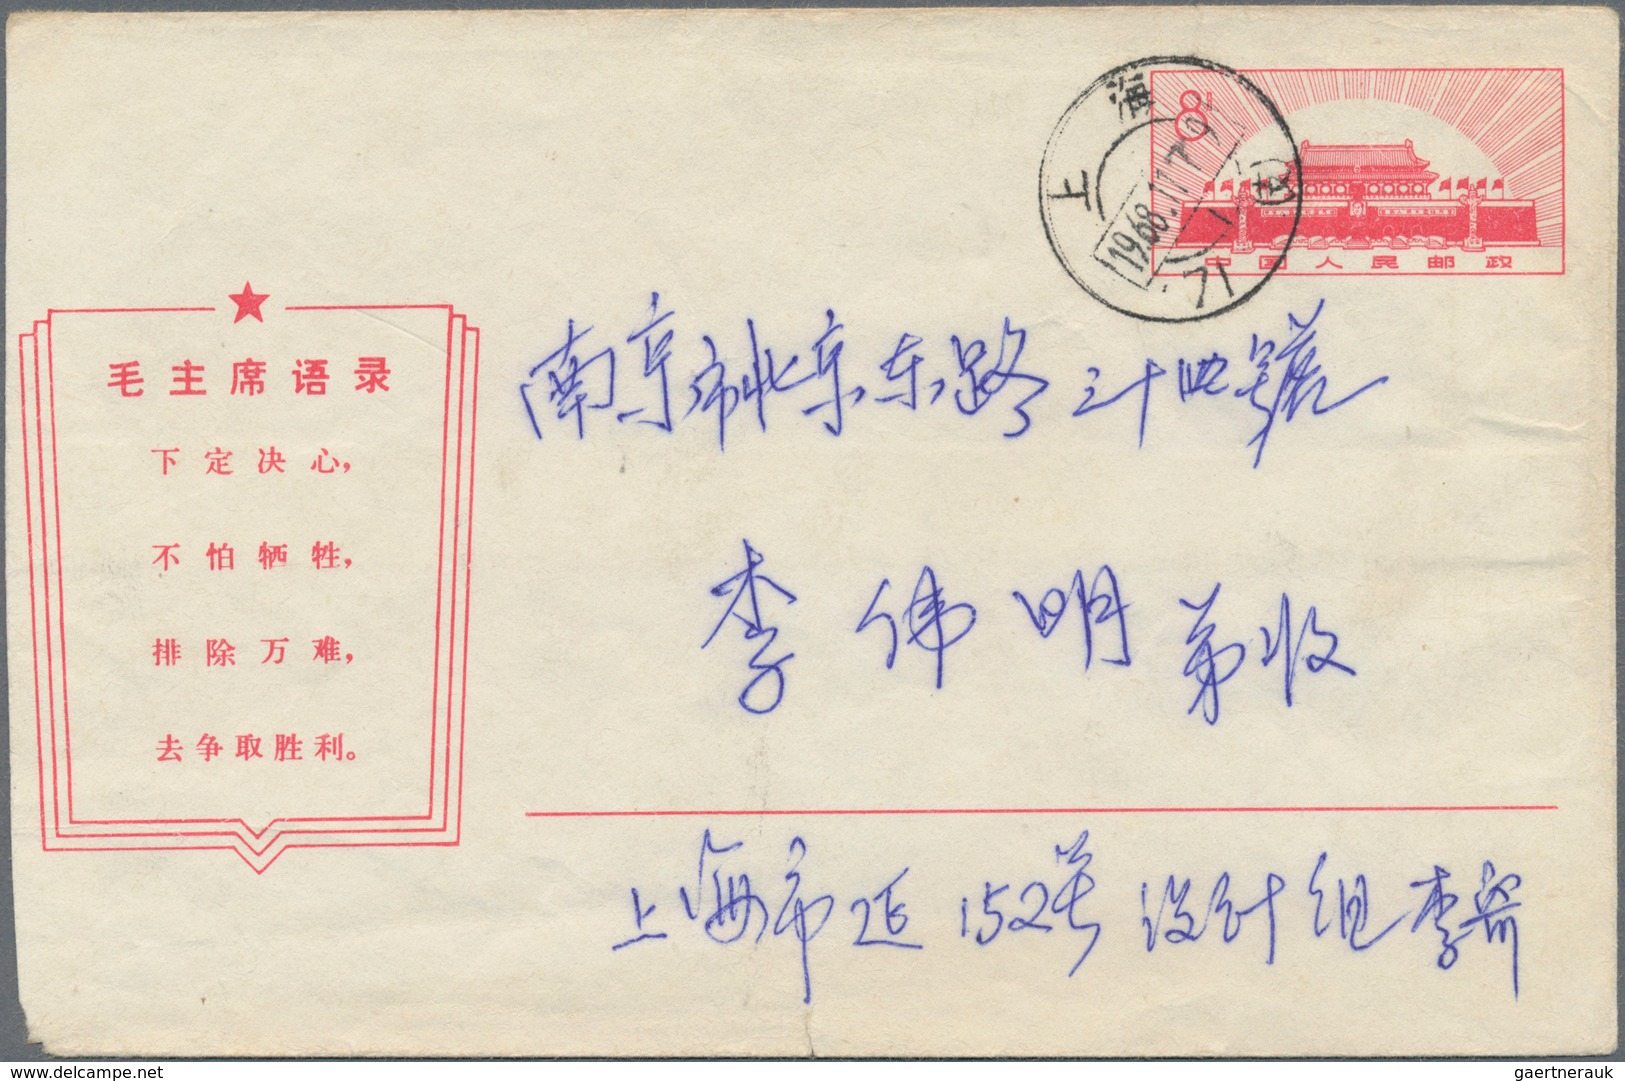 8
中国人民邮政
上海
1968.11.17
毛主席语录
下定决心，
不怕牺牲，
排除万难，
去争取胜利。
南京市北京东路三十四號
李伟明弟收
上海市延152号设计组李寄
gaertnerauk